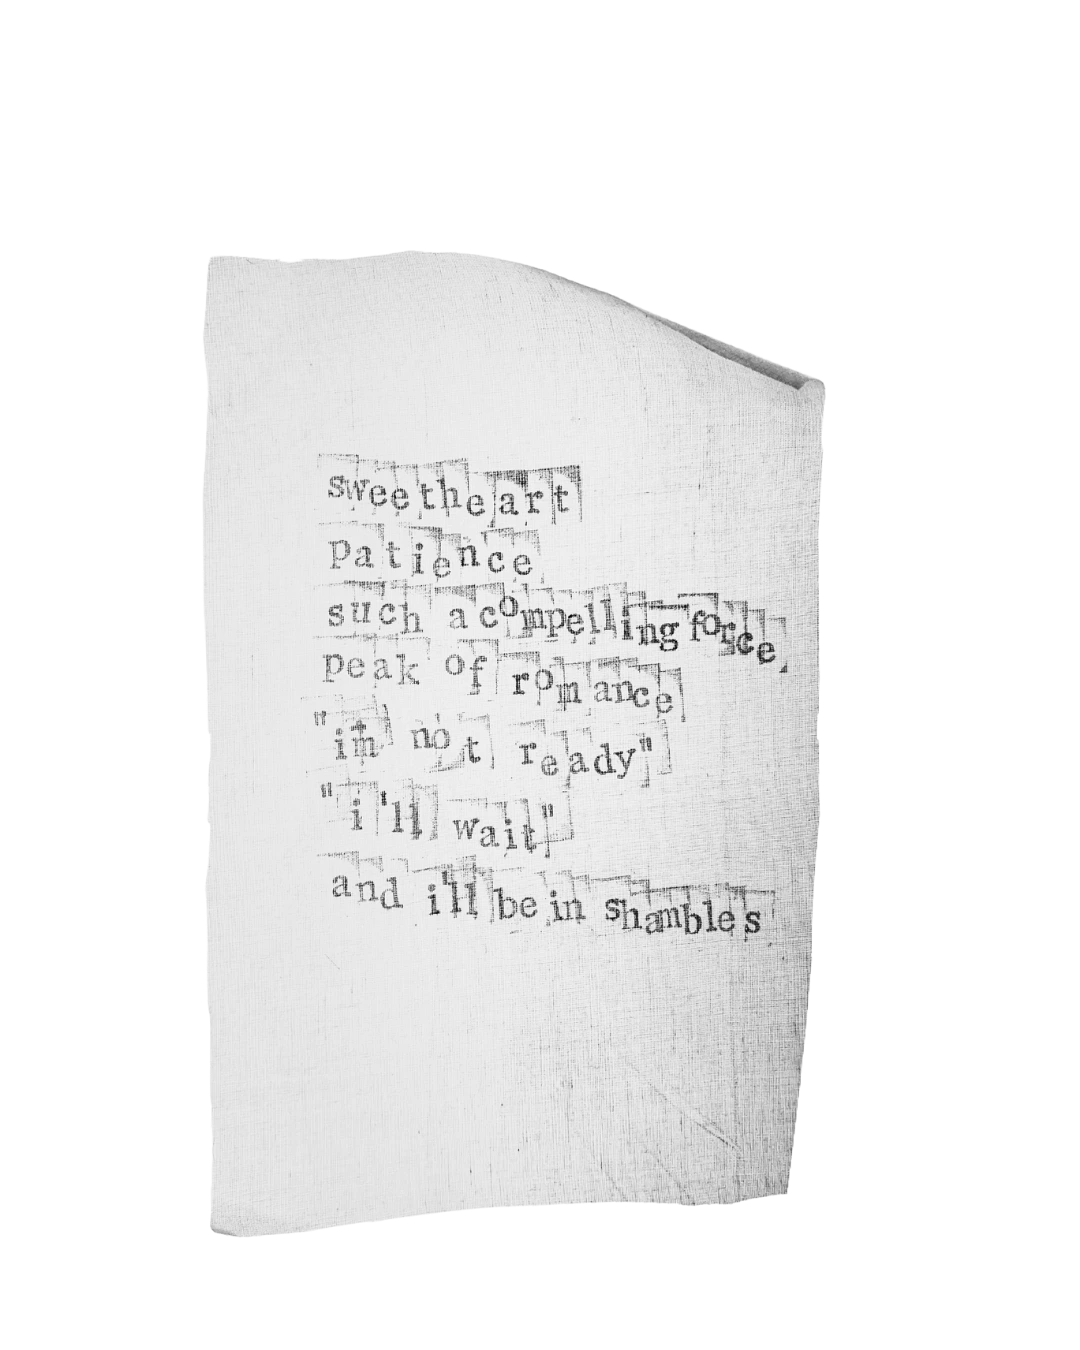 sweetheart
patience
such a compelling force,
peak of romance
"im not ready"
"i'll wait"
and i'll be in shambles